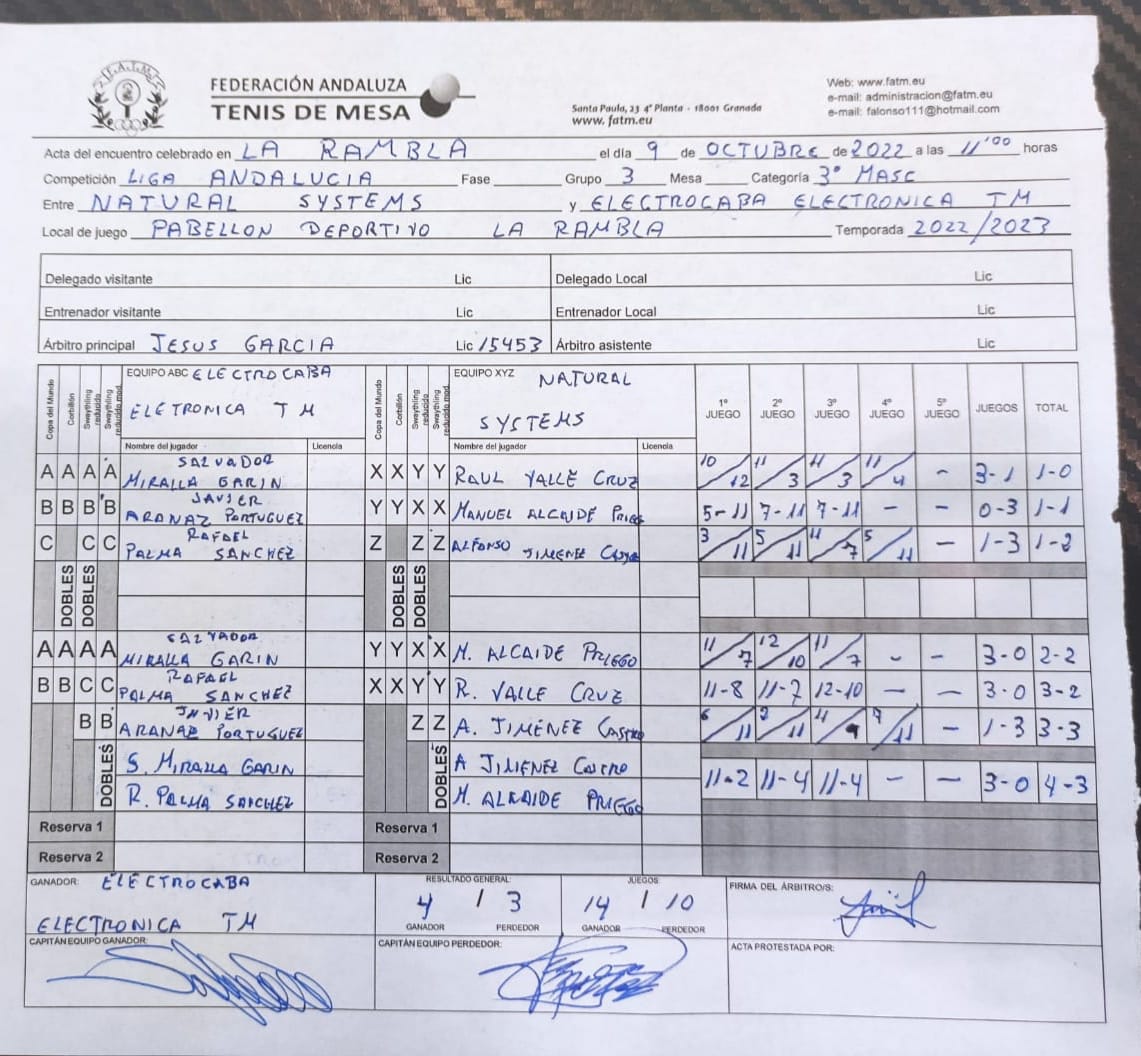 F.A.T.M.
FEDERACIÓN ANDALUZA
TENIS DE MESA
Santa Paula, 23 4ª Planta - 18001 Granada
www. fatm.eu
Web: www.fatm.eu
e-mail: administracion@fatm.eu
e-mail: falonso111@hotmail.com
Acta del encuentro celebrado en LA RAMBLA el día 9 de OCTUBRE de 2022 a las 11'00 horas
Competición LIGA ANDALUCIA Fase Grupo 3 Mesa Categoría 3ª MASC
Entre NATURAL SYSTEMS y ELECTROCABA ELECTRONICA TM
Local de juego PABELLON DEPORTIVO LA RAMBLA Temporada 2022/2023
Delegado visitante Lic Delegado Local Lic
Entrenador visitante Lic Entrenador Local Lic
Árbitro principal JESUS GARCIA Lic 15453 Árbitro asistente Lic
Copa del Mundo Corbillón Swaythling reducido Swaythling reducido mod. EQUIPO ABC ELECTROCABA ELETRONICA TM Copa del Mundo Corbillón Swaythling reducido Swaythling reducido mod. EQUIPO XYZ NATURAL SYSTEMS 1º JUEGO 2º JUEGO 3º JUEGO 4º JUEGO 5º JUEGO JUEGOS TOTAL
Nombre del jugador Licencia Nombre del jugador Licencia
A A A A SALVADOR MIRALLA GARIN X X Y Y RAUL VALLE CRUZ 10/12 11/3 11/3 11/4 - 3-1 1-0
B B B B JAVIER ARANAZ PORTUGUEZ Y Y X X MANUEL ALCAIDE 5-11 7-11 7-11 - - 0-3 1-1
C C C RAFAEL PALMA SANCHEZ Z Z Z ALFONSO JIMENEZ 3/11 5/11 11/7 5/11 - 1-3 1-2
DOBLES DOBLES DOBLES DOBLES
A A A A SALVADOR MIRALLA GARIN Y Y X X M. ALCAIDE PRIEGO 11/7 12/10 11/7 - - 3-0 2-2
B B C C RAFAEL PALMA SANCHEZ X X Y Y R. VALLE CRUZ 11-8 11-7 12-10 - - 3-0 3-2
B B JAVIER ARANAZ PORTUGUEZ Z Z A. JIMÉNEZ CASTRO 6/11 /11 /11 - 1-3 3-3
DOBLES S. MIRALLA GARIN DOBLES A JIMENEZ CASTRO 11-2 11-4 11-4 - - 3-0 4-3
R. PALMA SANCHEZ M. ALCAIDE PRIEGO
Reserva 1 Reserva 1
Reserva 2 Reserva 2
GANADOR: ELECTROCABA ELECTRONICA TM
RESULTADO GENERAL: 4 / 3
GANADOR PERDEDOR
JUEGOS: 14 / 10
GANADOR PERDEDOR
FIRMA DEL ÁRBITRO/S:
CAPITÁN EQUIPO GANADOR: CAPITÁN EQUIPO PERDEDOR: ACTA PROTESTADA POR: